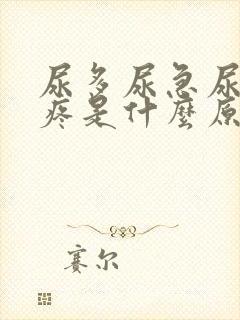 尿多尿急尿
疼是什麼原
赛尔